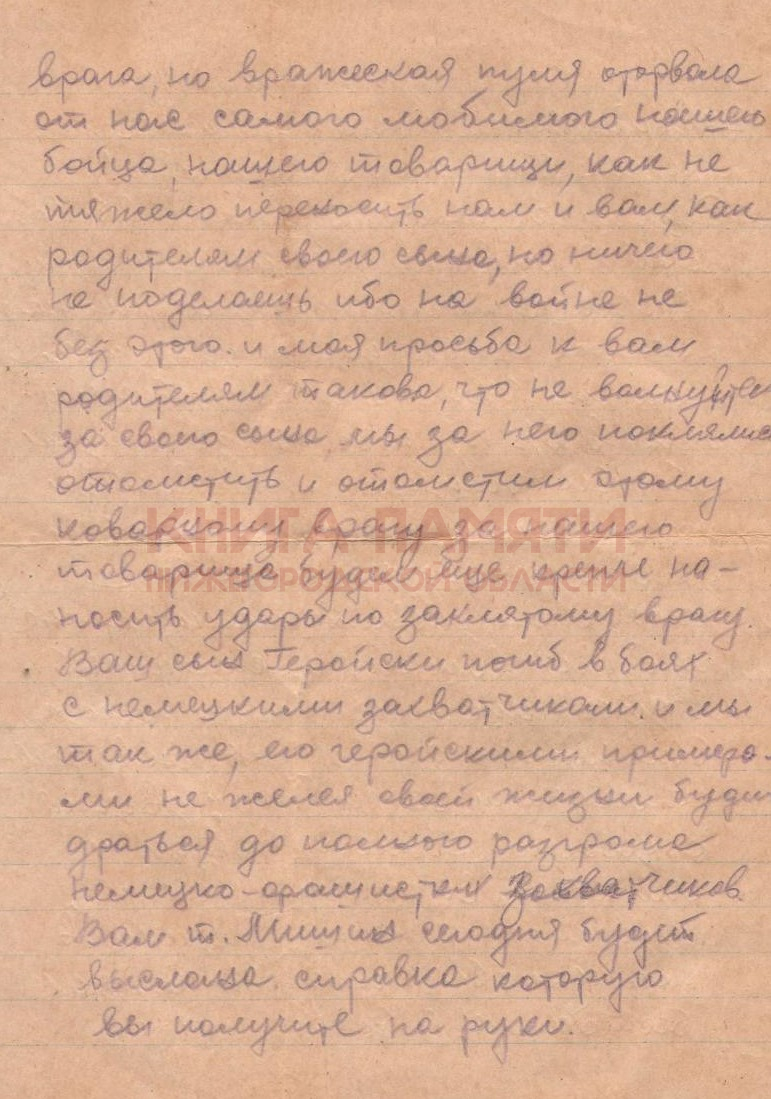 врага, но вражеская пуля оторвала
от нас самого любимого нашего
бойца, нашего товарищи, как не
тяжело переносить нам и вам, как
родителям своего сына, но ничего
не поделаешь ибо на войне не
без этого. и моя просьба к вам
родителям такова, что не волнуйтесь
за своего сына, мы за него поклялись
отомстить и отомстим этому
коварному врагу за нашего
КНИГА ПАМЯТИ
товарища будем еще крепче на-
НИЖЕГОРОДСКОЙ ОБЛАСТИ
носить удары по заклятому врагу.
Ваш сын Геройски погиб в боях
с немецкими захватчиками. и мы
так же, его геройскими примера-
ми не желея своей жизни будем
драться до полного разгрома
немецко-фашистких захватчиков.
Вам т. сегодня будет
выслана справка которую
вы получите на руки.